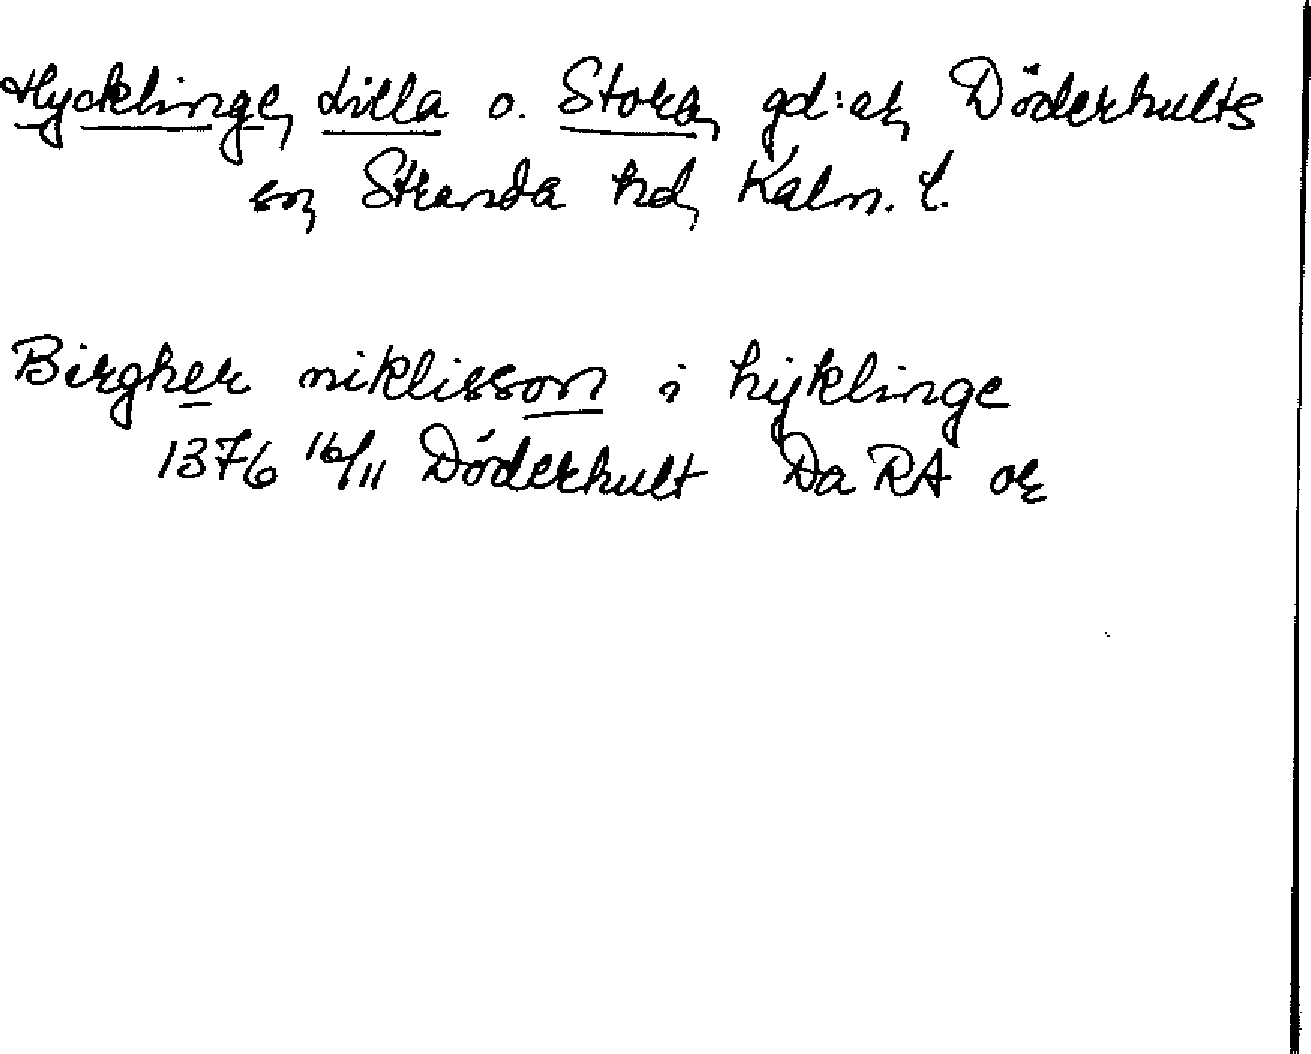 Hycklinge, Lilla o. Stora, gd:ar, Döderhults
sn, Stranda hd, Kalm. l.
Birgher niklisson i hijklinge
1376 16/11 Döderhult Da RA or